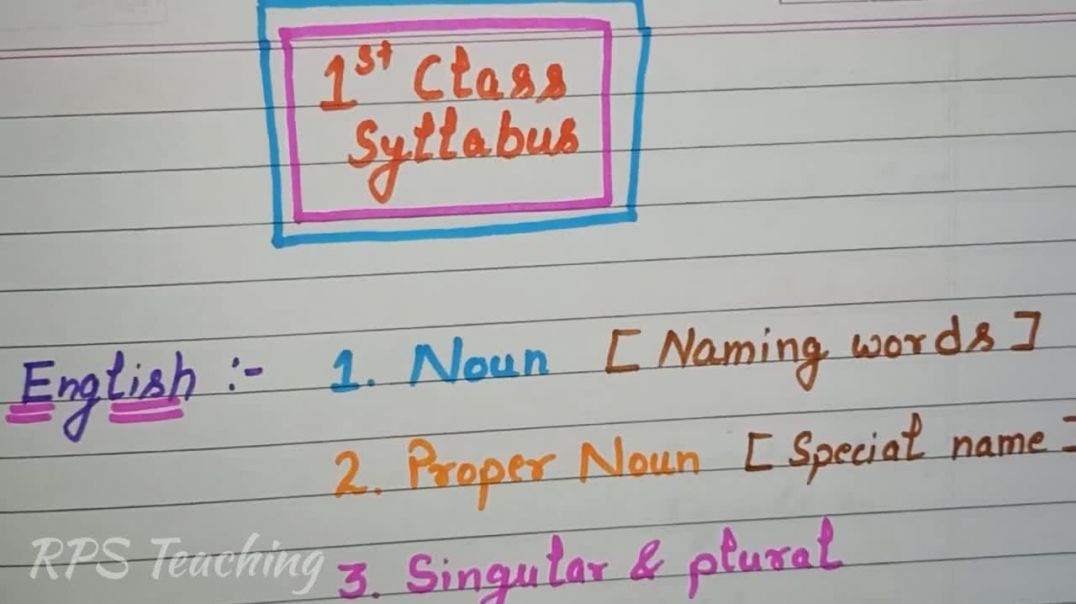 1st Class
Syllabus
English :- 1. Noun [ Naming words ]
2. Proper Noun [ Special name ]
RPS Teaching
3. Singular & plural